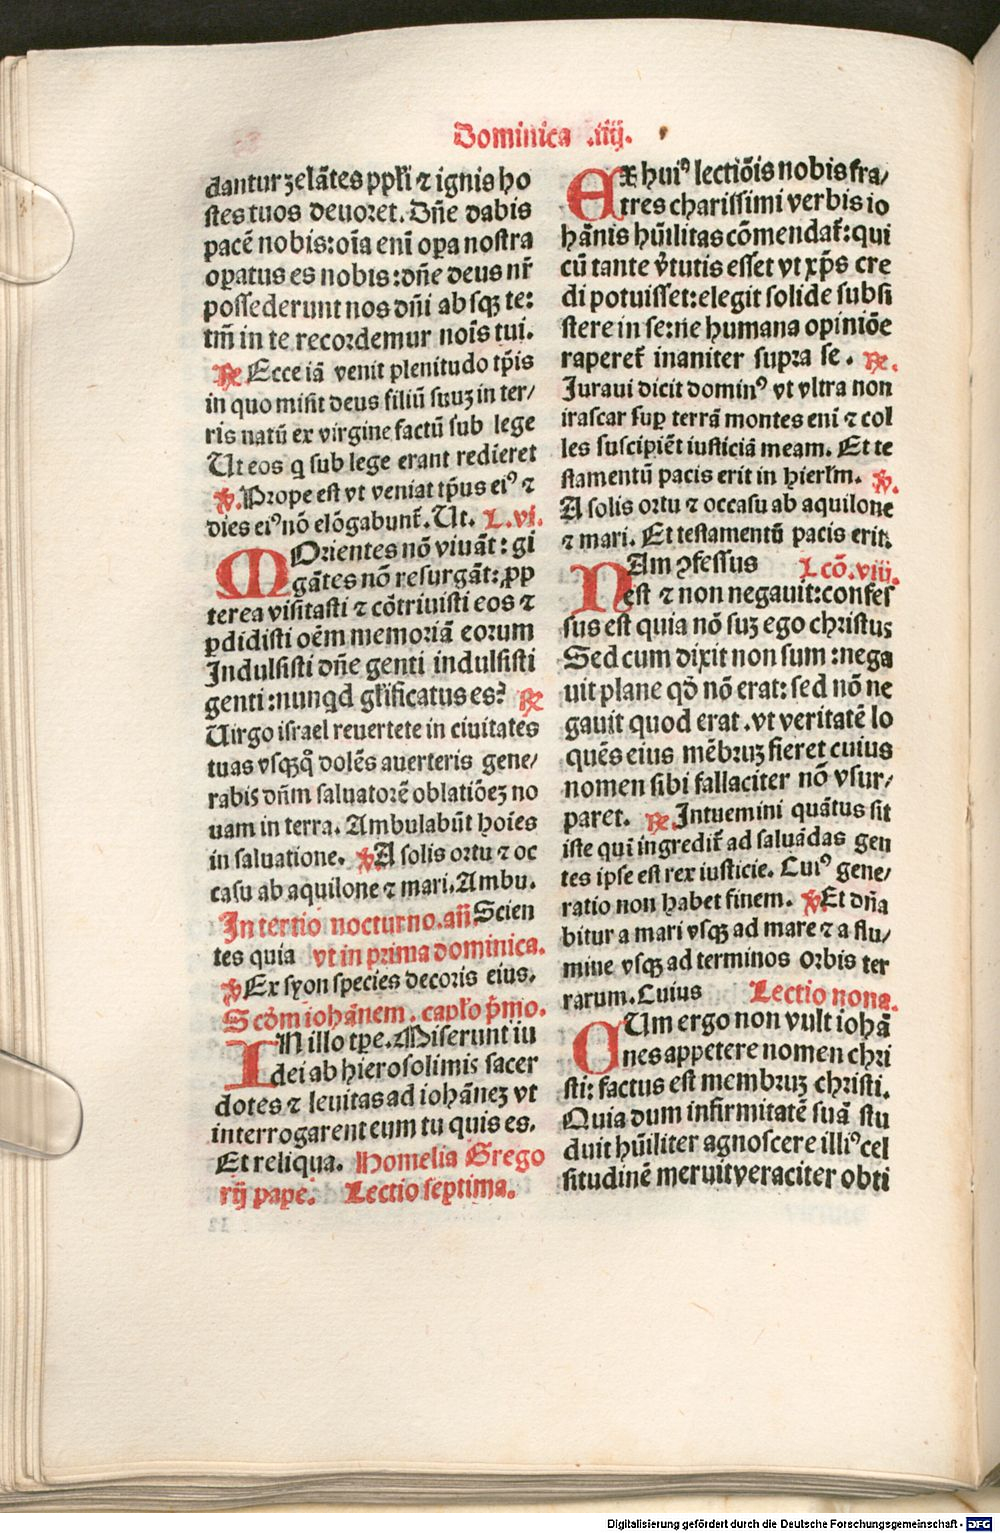 Dominica .iiij.
dantur zelātes ppłi ⁊ ignis ho
stes tuos deuoret. Dn̄e dabis
pacē nobis: oīa enī oꝑa nostra
oꝑatus es nobis: dn̄e deus nr̄
possederunt nos dn̄i absqꝫ te:
tm̄ in te recordemur noīs tui.
℞ Ecce iā venit plenitudo tp̄is
in quo misit deus filiū suuꝫ in ter/
ris natū ex virgine factū sub lege
Ut eos q sub lege erant redieret
℣. Prope est vt veniat tp̄us eiꝰ ⁊
dies eiꝰ nō elōgabunt᷑. Ut. L. vi.
MOrientes nō viuāt: gi
gātes nō resurgāt: ꝓp
terea visitasti ⁊ cōtriuisti eos ⁊
ꝑdidisti oēm memoriā eorum
Indulsisti dn̄e genti indulsisti
genti: nunqd gl̄ificatus es? ℞
Uirgo israel reuertete in ciuitates
tuas vsqꝫqͦ dolēs auerteris gene/
rabis dn̄m saluatorē oblatiōeꝫ no
uam in terra. Ambulabūt hoīes
in saluatione. ℣ A solis ortu ⁊ oc
casu ab aquilone ⁊ mari. Ambu.
In tertio nocturno. an̄. Scien
tes quia vt in prima dominica.
℣ Ex syon species decoris eius.
Scd̄m iohānem. capło p̄mo.
IN illo tꝑe. Miserunt iu
dei ab hierosolimis sacer
dotes ⁊ leuitas ad iohāneꝫ vt
interrogarent eum tu quis es.
Et reliqua. Homelia Grego
rij pape. Lectio septima.
EX huiꝰ lectiōis nobis fra/
tres charissimi verbis io
hānis hūilitas cōmendat᷑: qui
cū tante v̓tutis esset vt xp̄s cre
di potuisset: elegit solide subsi
stere in se: ne humana opiniōe
raperet᷑ inaniter supra se. ℞.
Juraui dicit dominꝰ vt vltra non
irascar suꝑ terrā montes enī ⁊ col
les suscipiēt iusticiā meam. Et te
stamentū pacis erit in hierl̄m. ℣.
A solis ortu ⁊ occasu ab aquilone
⁊ mari. Et testamentū pacis erit.
NAm ꝯfessus Lcō. viij.
est ⁊ non negauit: confes
sus est quia nō suꝫ ego christus
Sed cum dixit non sum: nega
uit plane qd̄ nō erat: sed nō ne
gauit quod erat. vt veritatē lo
quēs eius mēbruꝫ fieret cuius
nomen sibi fallaciter nō vsur/
paret. ℞. Intuemini quātus sit
iste qui ingredit᷑ ad saluādas gen
tes ipse est rex iusticie. Cuiꝰ gene/
ratio non habet finem. ℣ Et dn̄a
bitur a mari vsqꝫ ad mare ⁊ a flu/
mine vsqꝫ ad terminos orbis ter
rarum. Cuius Lectio nona.
CUm ergo non vult iohā
nes appetere nomen chri
sti: factus est membruꝫ christi.
Quia dum infirmitatē suā stu
duit hūiliter agnoscere illiꝰ cel
situdinē meruit veraciter obti
Digitalisierung gefördert durch die Deutsche Forschungsgemeinschaft - DFG